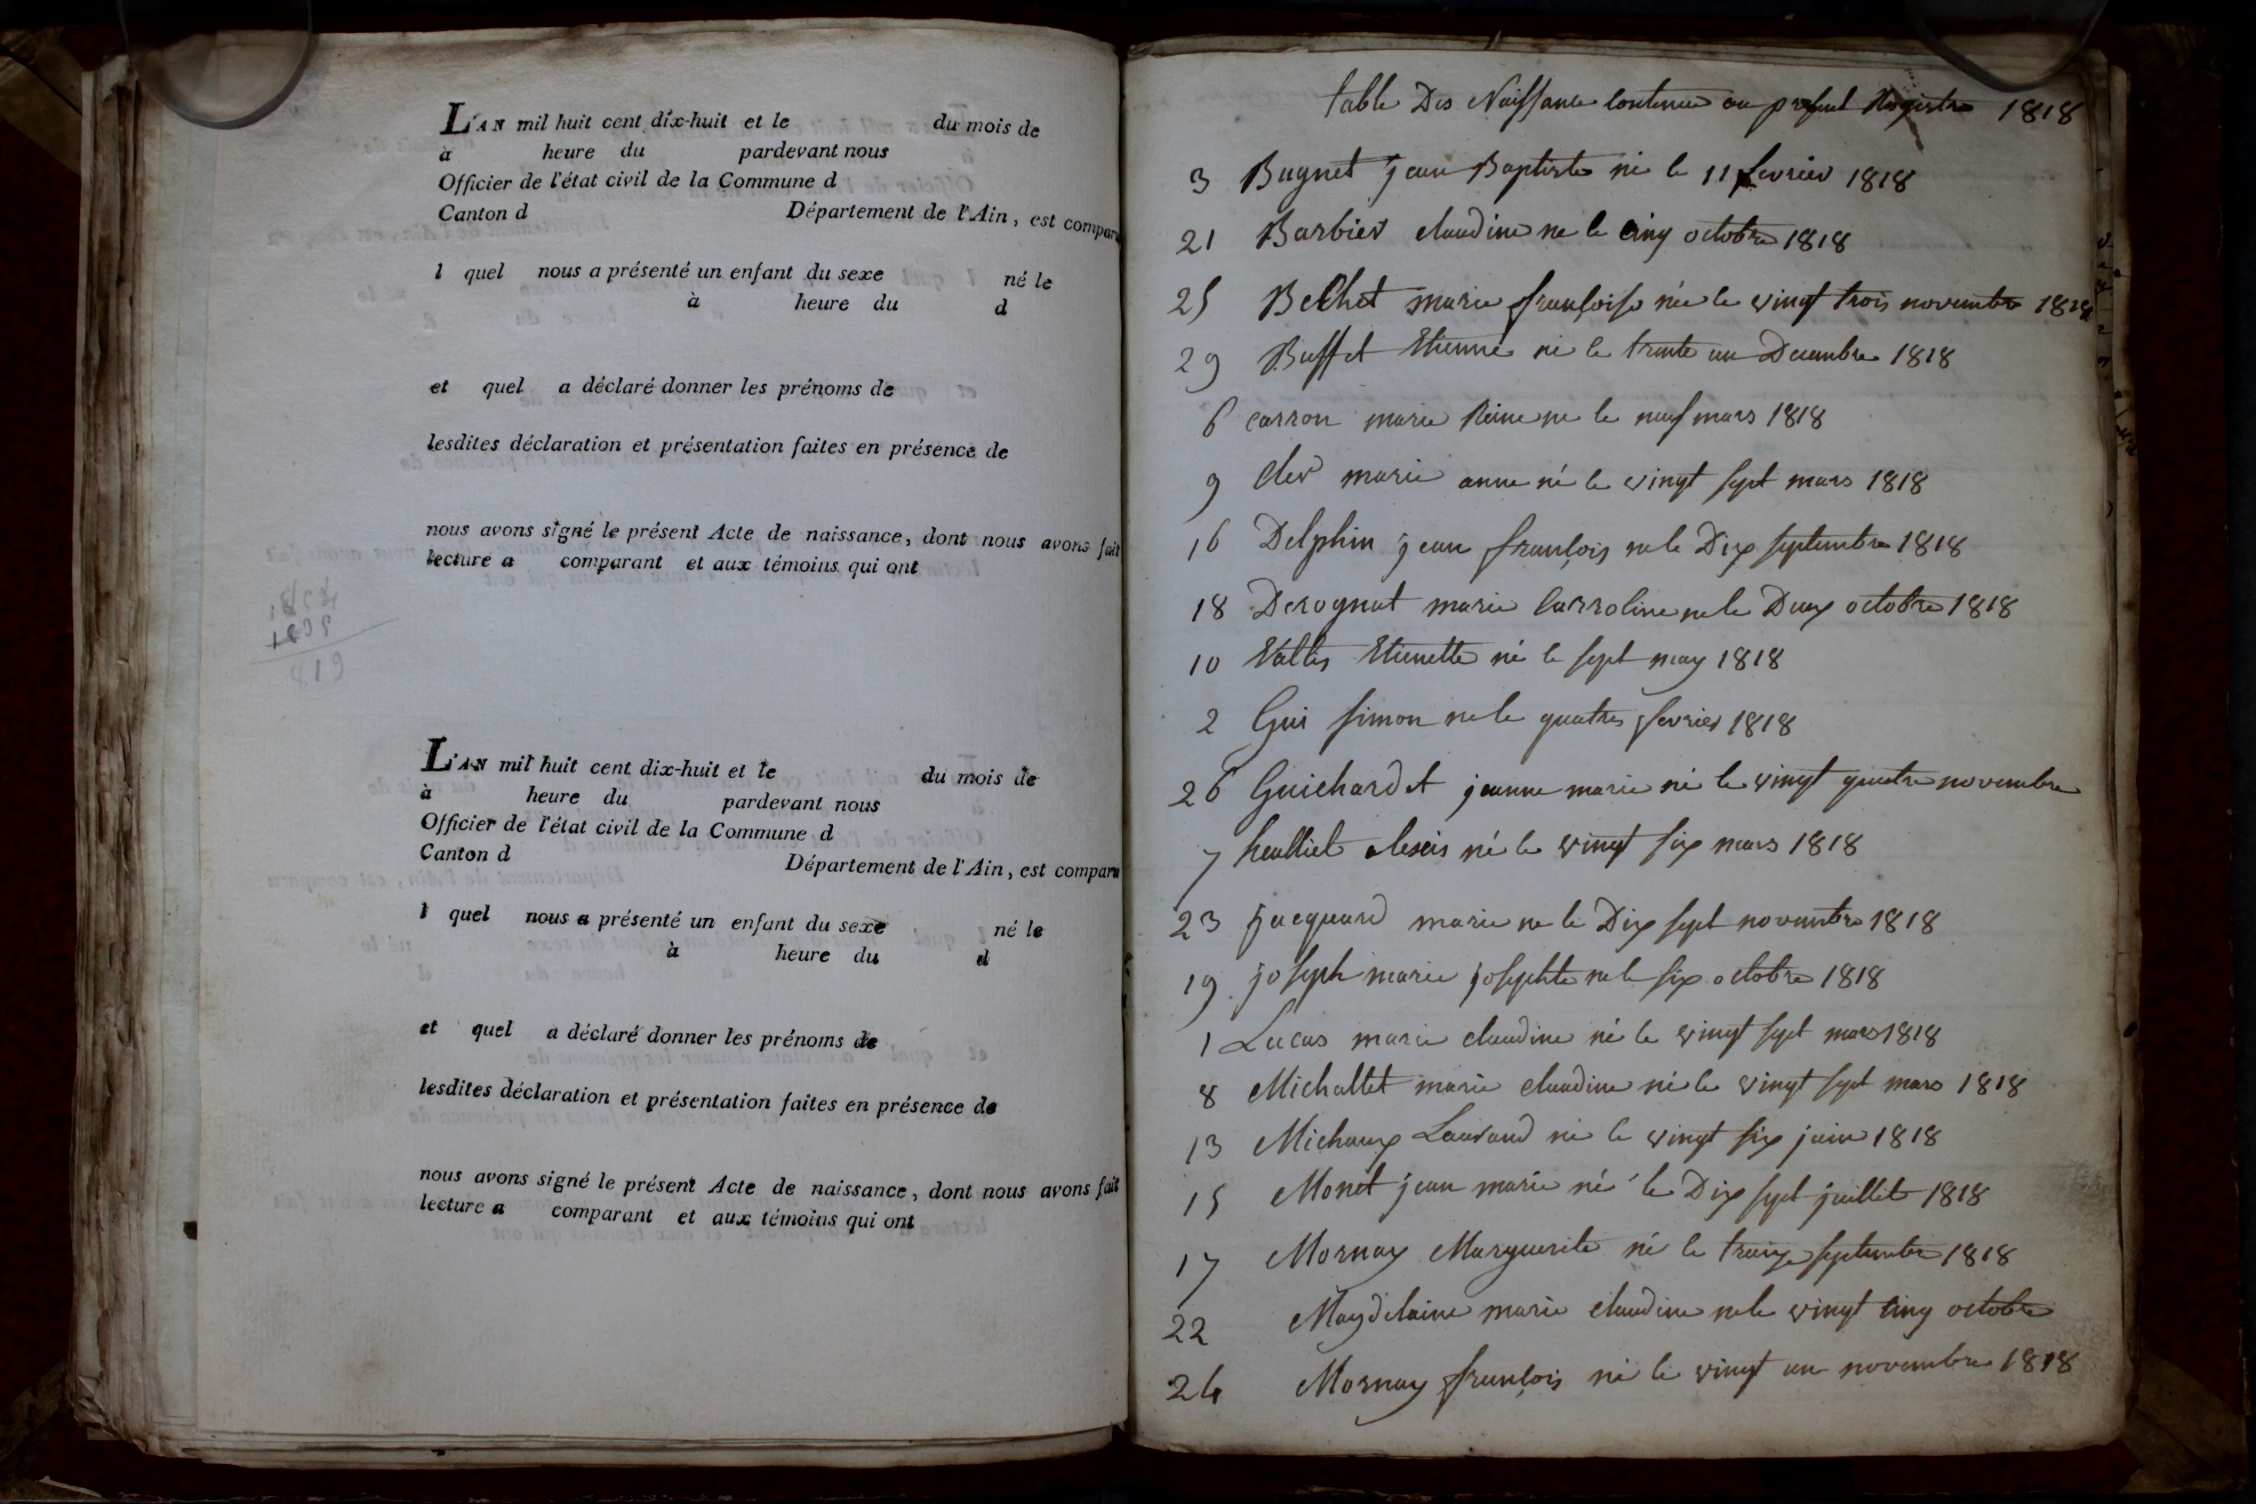 L'AN mil huit cent dix-huit et le du mois de
à heure du pardevant nous
Officier de l'état civil de la Commune d
Canton d Département de l'Ain, est comparu
l quel nous a présenté un enfant du sexe né le
à heure du d
et quel a déclaré donner les prénoms de
lesdites déclaration et présentation faites en présence de
nous avons signé le présent Acte de naissance, dont nous avons fait
lecture a comparant et aux témoins qui ont
L'AN mil huit cent dix-huit et le du mois de
à heure du pardevant nous
Officier de l'état civil de la Commune d
Canton d Département de l'Ain, est comparu
l quel nous a présenté un enfant du sexe né le
à heure du d
et quel a déclaré donner les prénoms de
lesdites déclaration et présentation faites en présence de
nous avons signé le présent Acte de naissance, dont nous avons fait
lecture a comparant et aux témoins qui ont
table Des Naissance contenue au present Registre 1818
3 Bugnet jean Baptiste né le 11 fevrier 1818
21 Barbier claudine ne le cinq octobre 1818
25 Bechet marie françoise née le vingt trois novembre 1818
29 Buffet Etienne né le trente un Decembre 1818
6 carron marie Reine ne le neuf mars 1818
9 cler marie anne né le vingt sept mars 1818
16 Delphin jean françois ne le Dix septembre 1818
18 Derognat marie Carroline ne le Deux octobre 1818
10 Etienette né le sept may 1818
2 Gui simon ne le quatre fevrier 1818
26 Guichardet jeanne marie né le vingt quatre novembre
7 alexis né le vingt six mars 1818
23 jacquand marie ne le Dix sept novembre 1818
19 joseph marie josephte ne le six octobre 1818
1 Lucas marie claudine né le vingt sept mars 1818
8 Michallet marie claudine né le vingt sept mars 1818
13 Michaux Laurand né le vingt six juin 1818
15 Monet jean marie né le Dix sept juillet 1818
17 Mornay Marguerite né le treize septembre 1818
22 Magdelaine marie claudine ne le vingt cinq octobre
24 Mornay françois né le vingt un novembre 1818